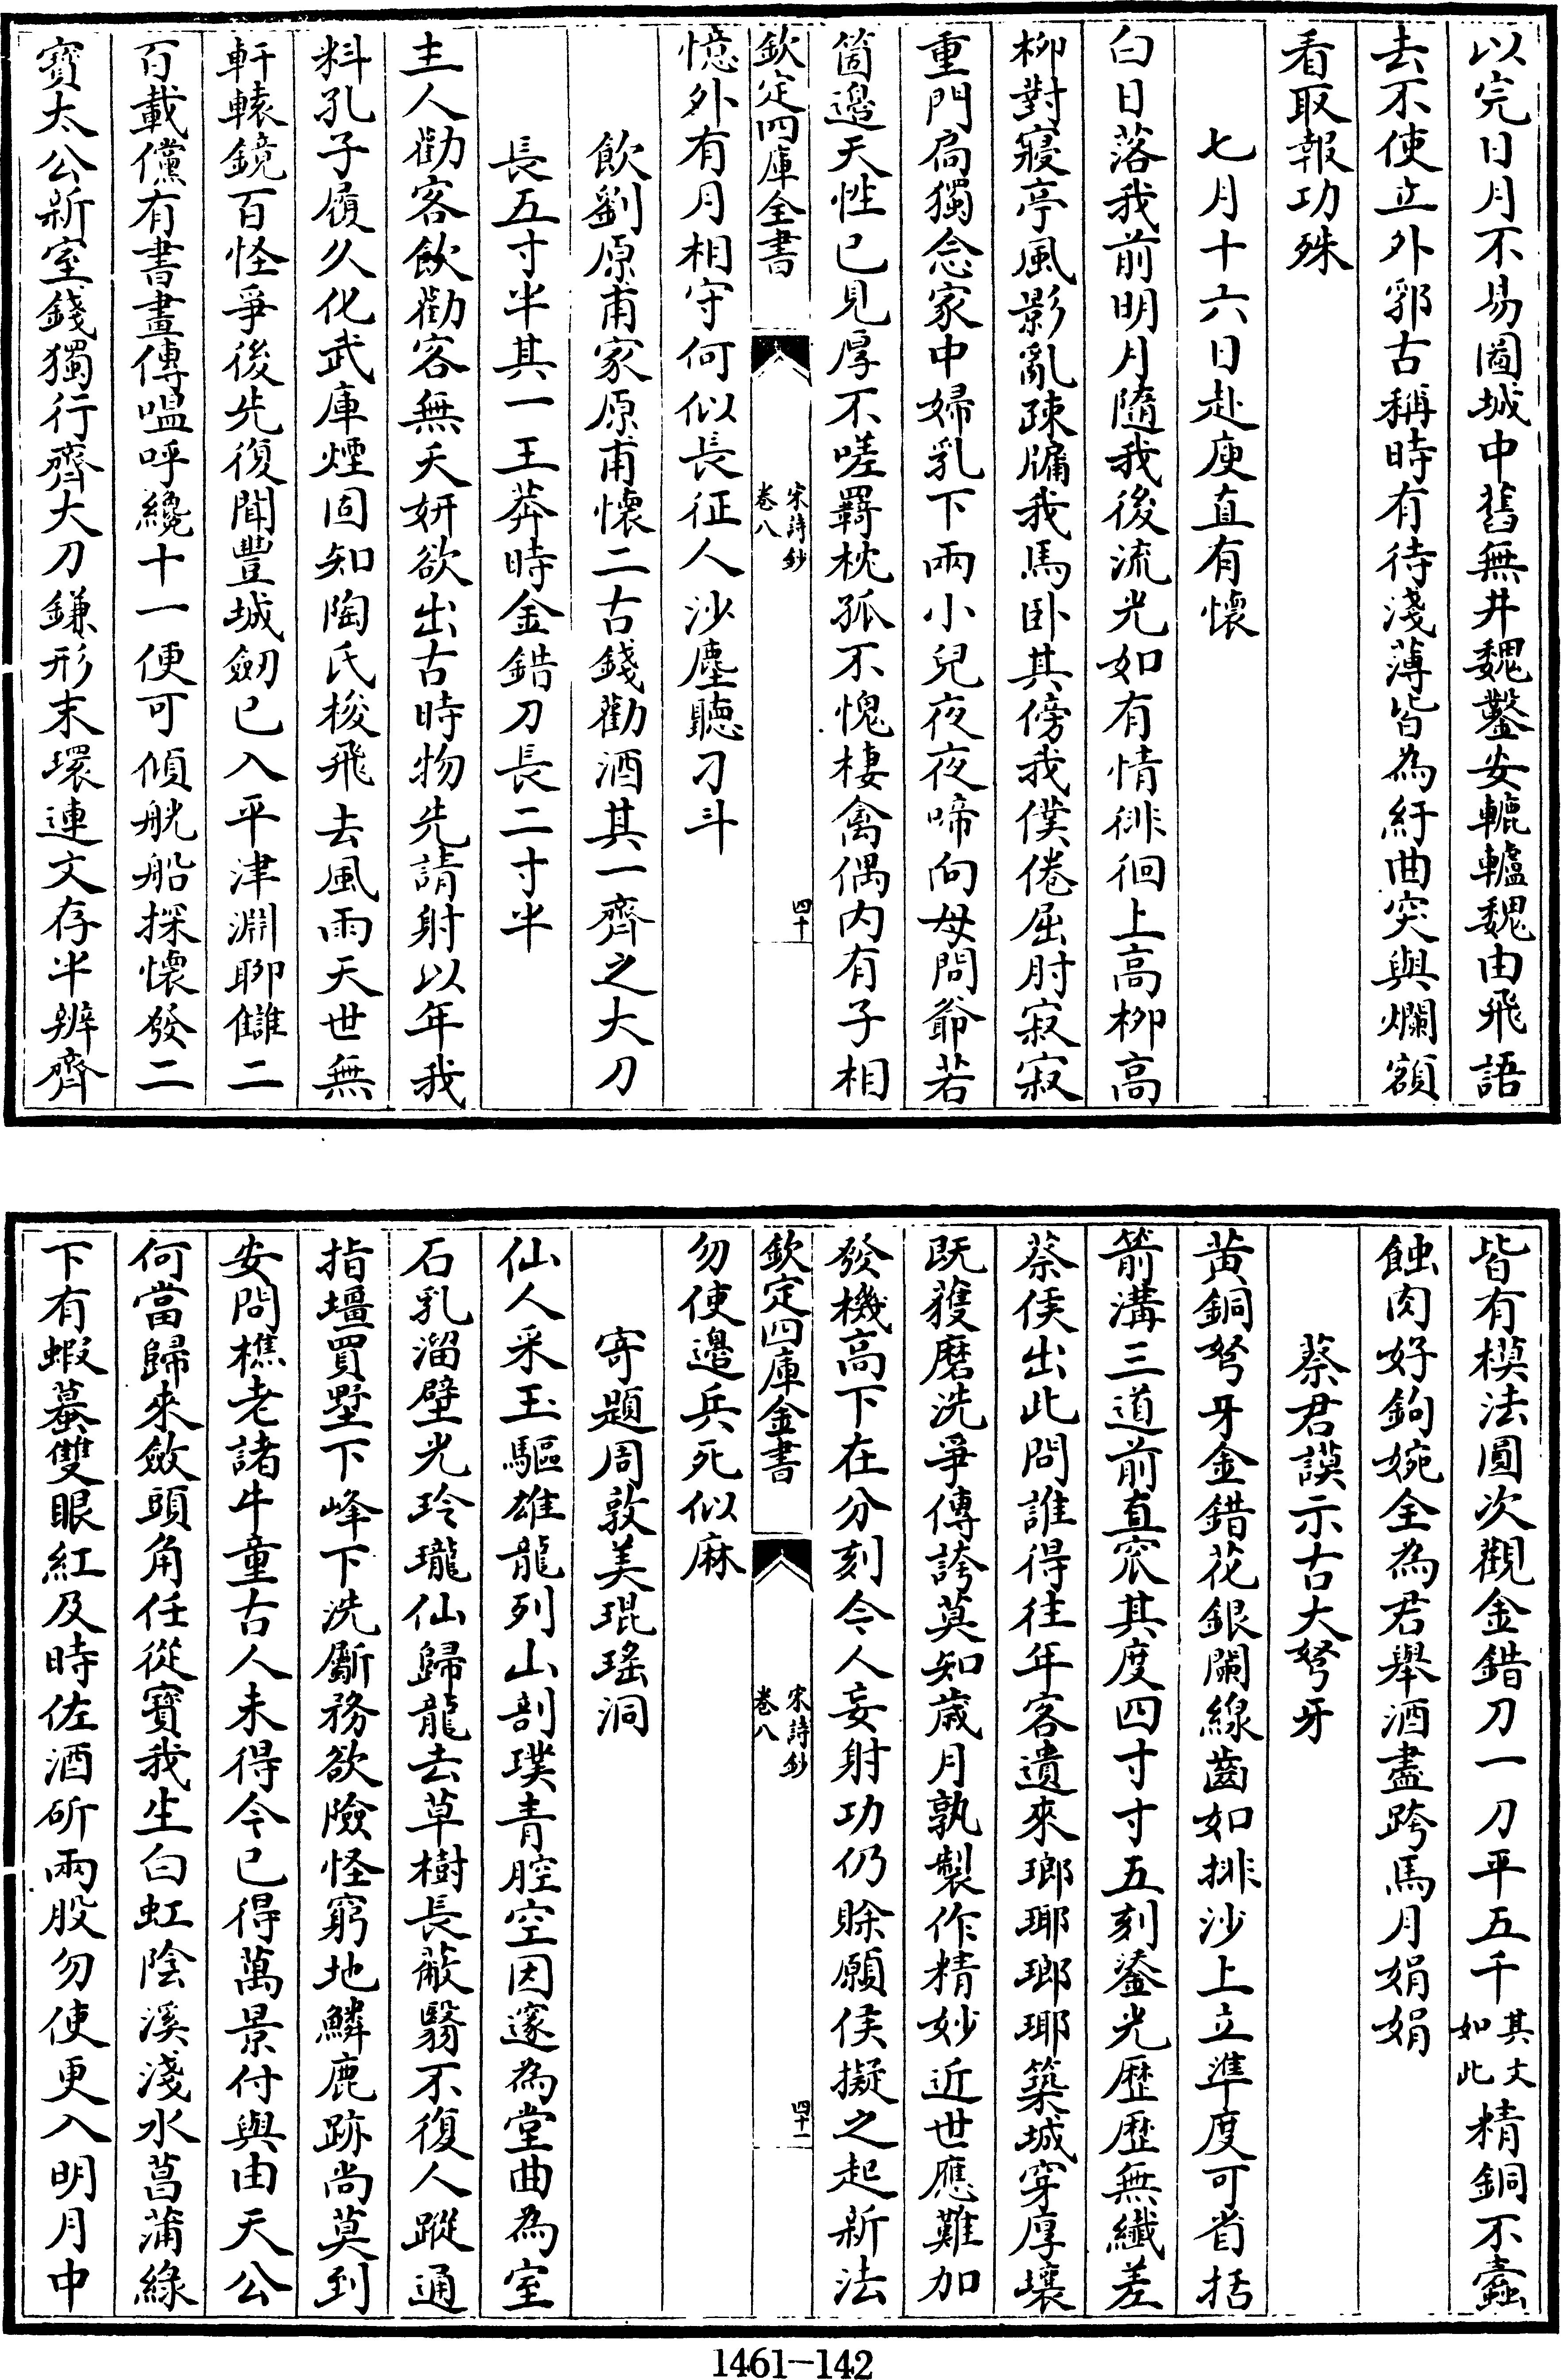 以完日月不易圖城中舊無井魏鑿安轆轤魏由飛語
去不使立外郛古稱時有待淺薄皆為紆曲突與爛額
看取報功殊
七月十六日赴庾直有懷
白日落我前明月隨我後流光如有情徘徊上高柳高
柳對寢亭風影亂疎牖我馬卧其傍我僕倦屈肘寂寂
重門扃獨念家中婦乳下兩小兒夜夜啼向母問爺若
箇邉天性已見厚不嗟羇枕孤不愧棲禽偶内有子相
欽定四庫全書
宋詩鈔
卷八
四十
憶外有月相守何似長征人沙塵聽刁斗
飲劉原甫家原甫懷二古錢勸酒其一齊之大刀
長五寸半其一王莽時金錯刀長二寸半
主人勸客飲勸客無夭妍欲出古時物先請射以年我
料孔子履久化武庫煙固知陶氏梭飛去風雨天世無
軒轅鏡百怪爭後先復聞豐城劒已入平津淵聊讎二
百載儻有書畫傳嗢呼纔十一便可傾觥船探懷發二
寶太公新室錢獨行齊大刀鎌形末環連文存半辨齊
皆有模法圓次觀金錯刀一刀平五千其文如此精銅不蠧
蝕肉好鉤婉全為君舉酒盡跨馬月娟娟
蔡君謨示古大弩牙
黄銅弩牙金錯花銀闌線齒如排沙上立準度可省括
箭溝三道前直窊其度四寸寸五刻鎏光歴歴無纎差
蔡侯出此問誰得往年客遺來瑯琊瑯琊築城穿厚壤
既獲磨洗爭傳誇莫知歳月孰製作精妙近世應難加
發機高下在分刻今人妄射功仍賖願侯擬之起新法
欽定四庫全書
宋詩鈔
卷八
四十一
勿使邉兵死似麻
寄題周敦美琨瑤洞
仙人采玉驅雄龍列山剖璞青腔空因邃為堂曲為室
石乳溜壁光玲瓏仙歸龍去草樹長蔽翳不復人蹤通
指壇買墅下峰下洗斸務欲險怪窮地鱗鹿跡尚莫到
安問樵老諸牛童古人未得今已得萬景付與由天公
何當歸來斂頭角任從寳我生白虹陰溪淺水菖蒲綠
下有蝦蟇雙眼紅及時佐酒斫兩股勿使更入明月中
1461-142